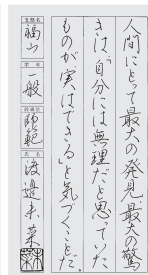 人間にとって最大の発見、最大の驚
きは、「自分には無理だと思っていた
ものが、実はできる」と気づくことだ。
支部名 福山
学年 一般
段級位 師範
氏名 渡邉未菜